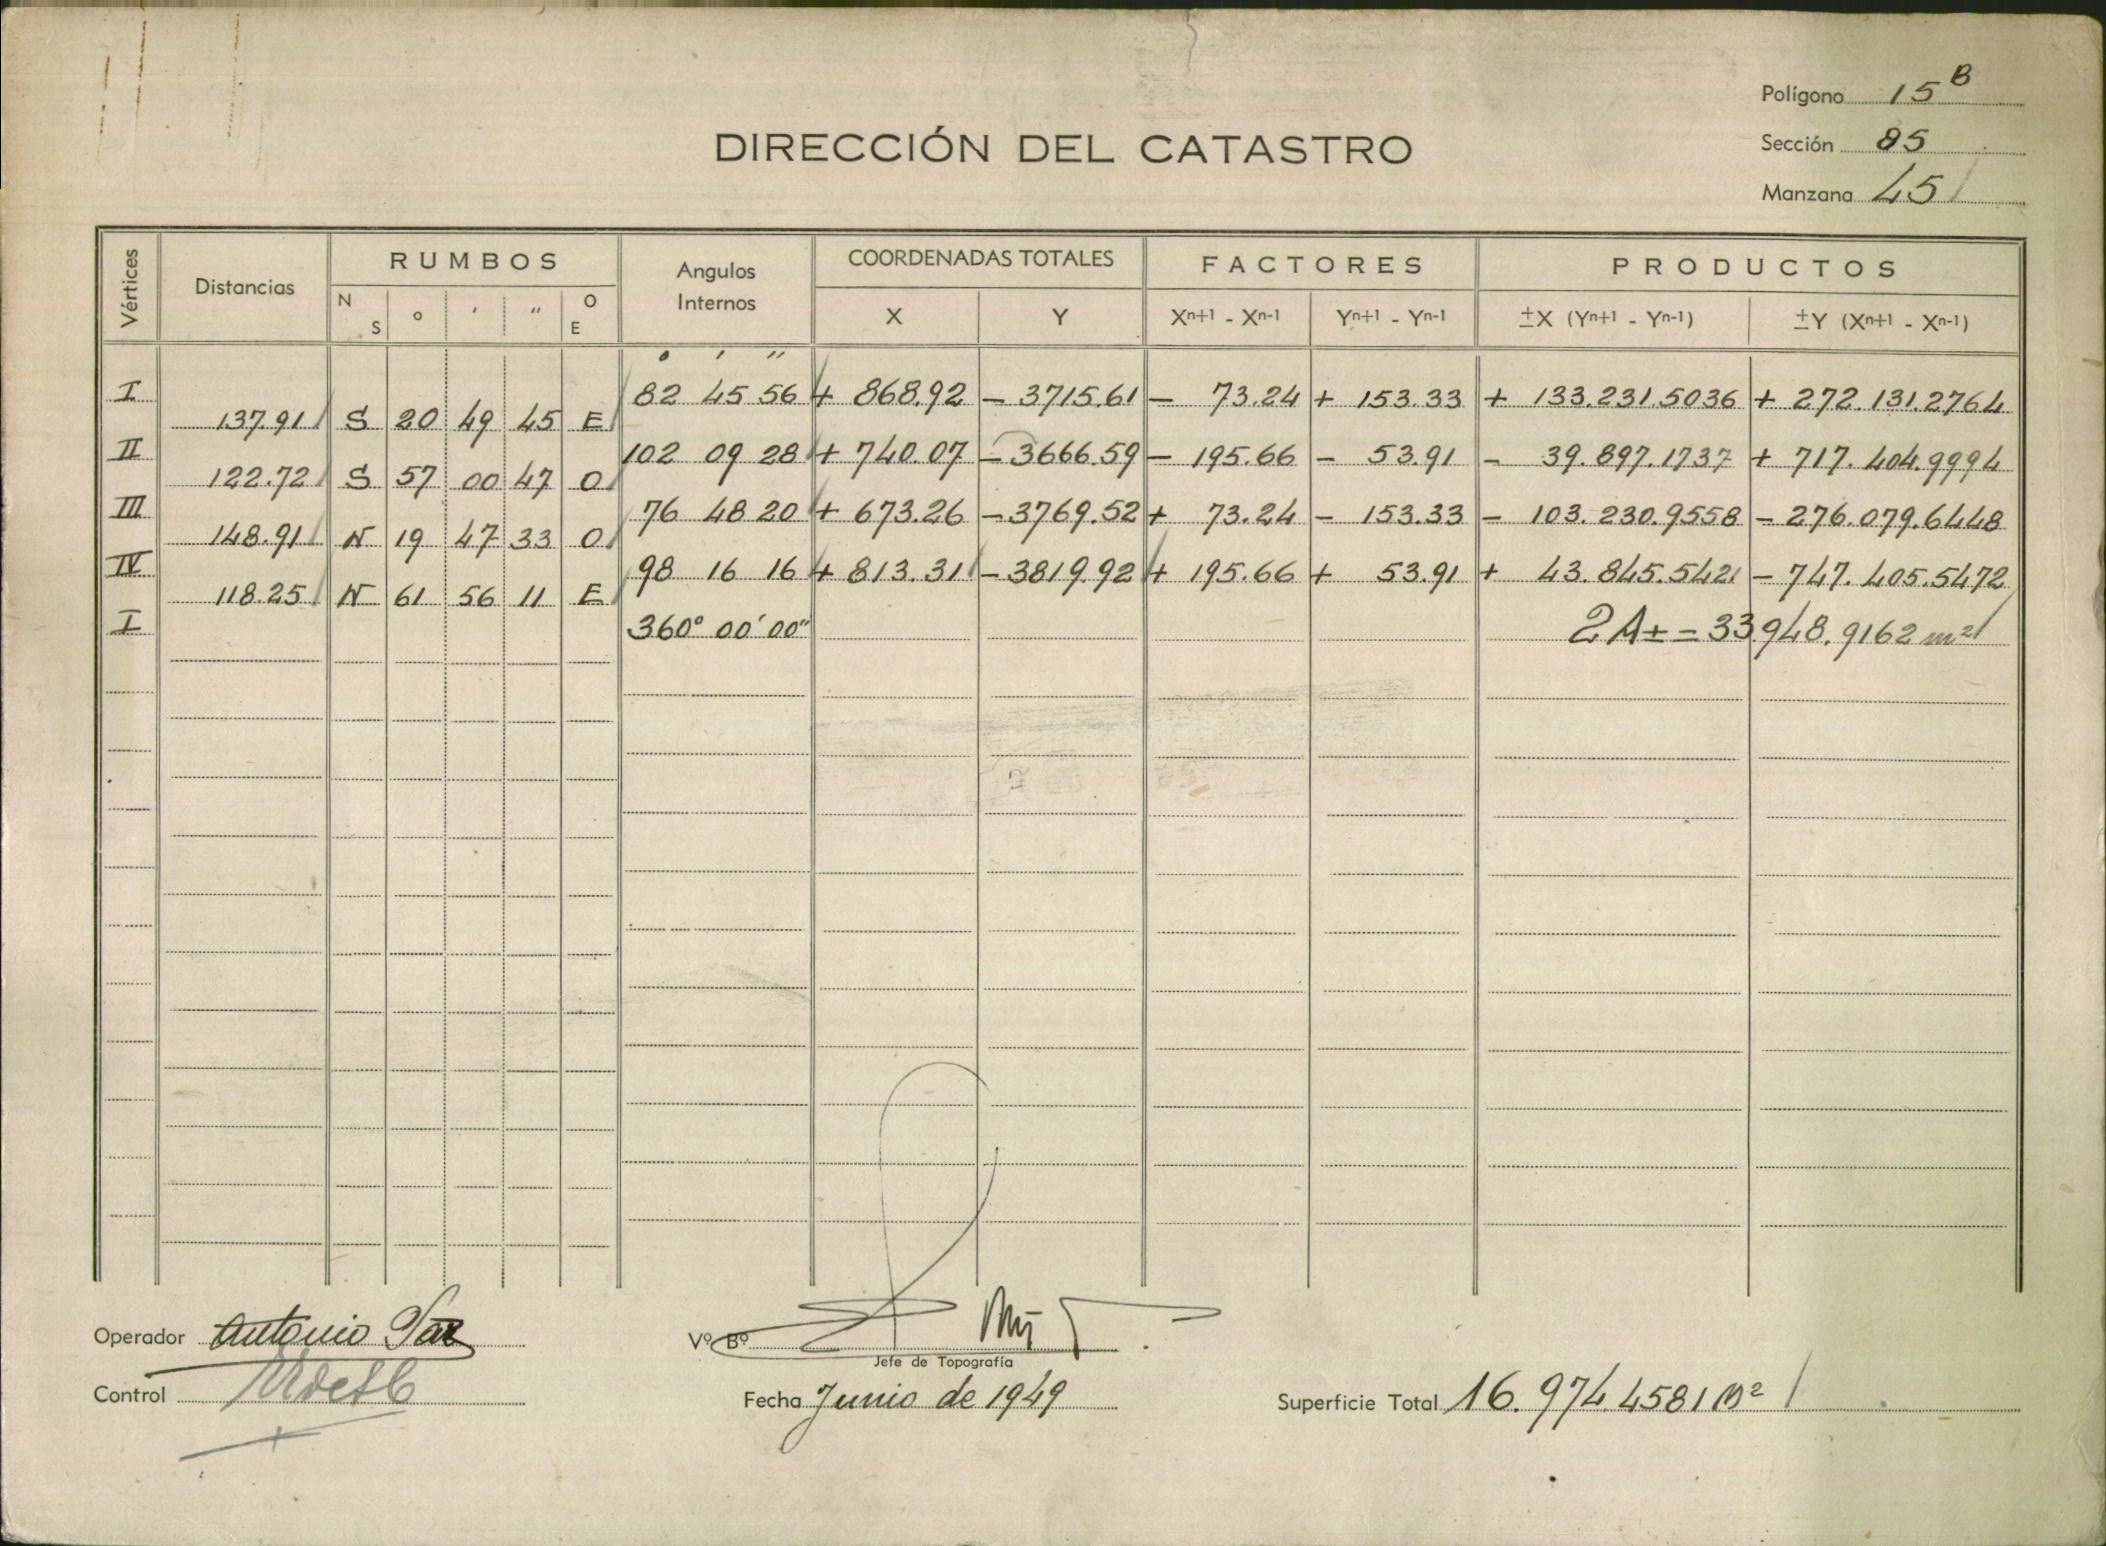 Polígono 15 B
DIRECCIÓN DEL CATASTRO
Sección 85
Manzana 45
Vértices Distancias RUMBOS Angulos Internos COORDENADAS TOTALES FACTORES PRODUCTOS
N S ° ' " O E X Y Xⁿ⁺¹ - Xⁿ⁻¹ Yⁿ⁺¹ - Yⁿ⁻¹ ±X (Yⁿ⁺¹ - Yⁿ⁻¹) ±Y (Xⁿ⁺¹ - Xⁿ⁻¹)
° ' "
I 82 45 56 + 868.92 - 3715.61 - 73.24 + 153.33 + 133.231.5036 + 272.131.2764
137.91 S 20 49 45 E
II 102 09 28 + 740.07 - 3666.59 - 195.66 - 53.91 - 39.897.1737 + 717.404.9994
122.72 S 57 00 47 O
III 76 48 20 + 673.26 - 3769.52 + 73.24 - 153.33 - 103.230.9558 - 276.079.6448
148.91 N 19 47 33 O
IV 98 16 16 + 813.31 - 3819.92 + 195.66 + 53.91 + 43.845.5421 - 747.405.5472
118.25 N 61 56 11 E
I 360° 00' 00" 2A± = 33.948.9162 m²
Operador Antonio Paz
Vº Bº
Jefe de Topografía
Control
Fecha Junio de 1949
Superficie Total 16.974.4581 M²